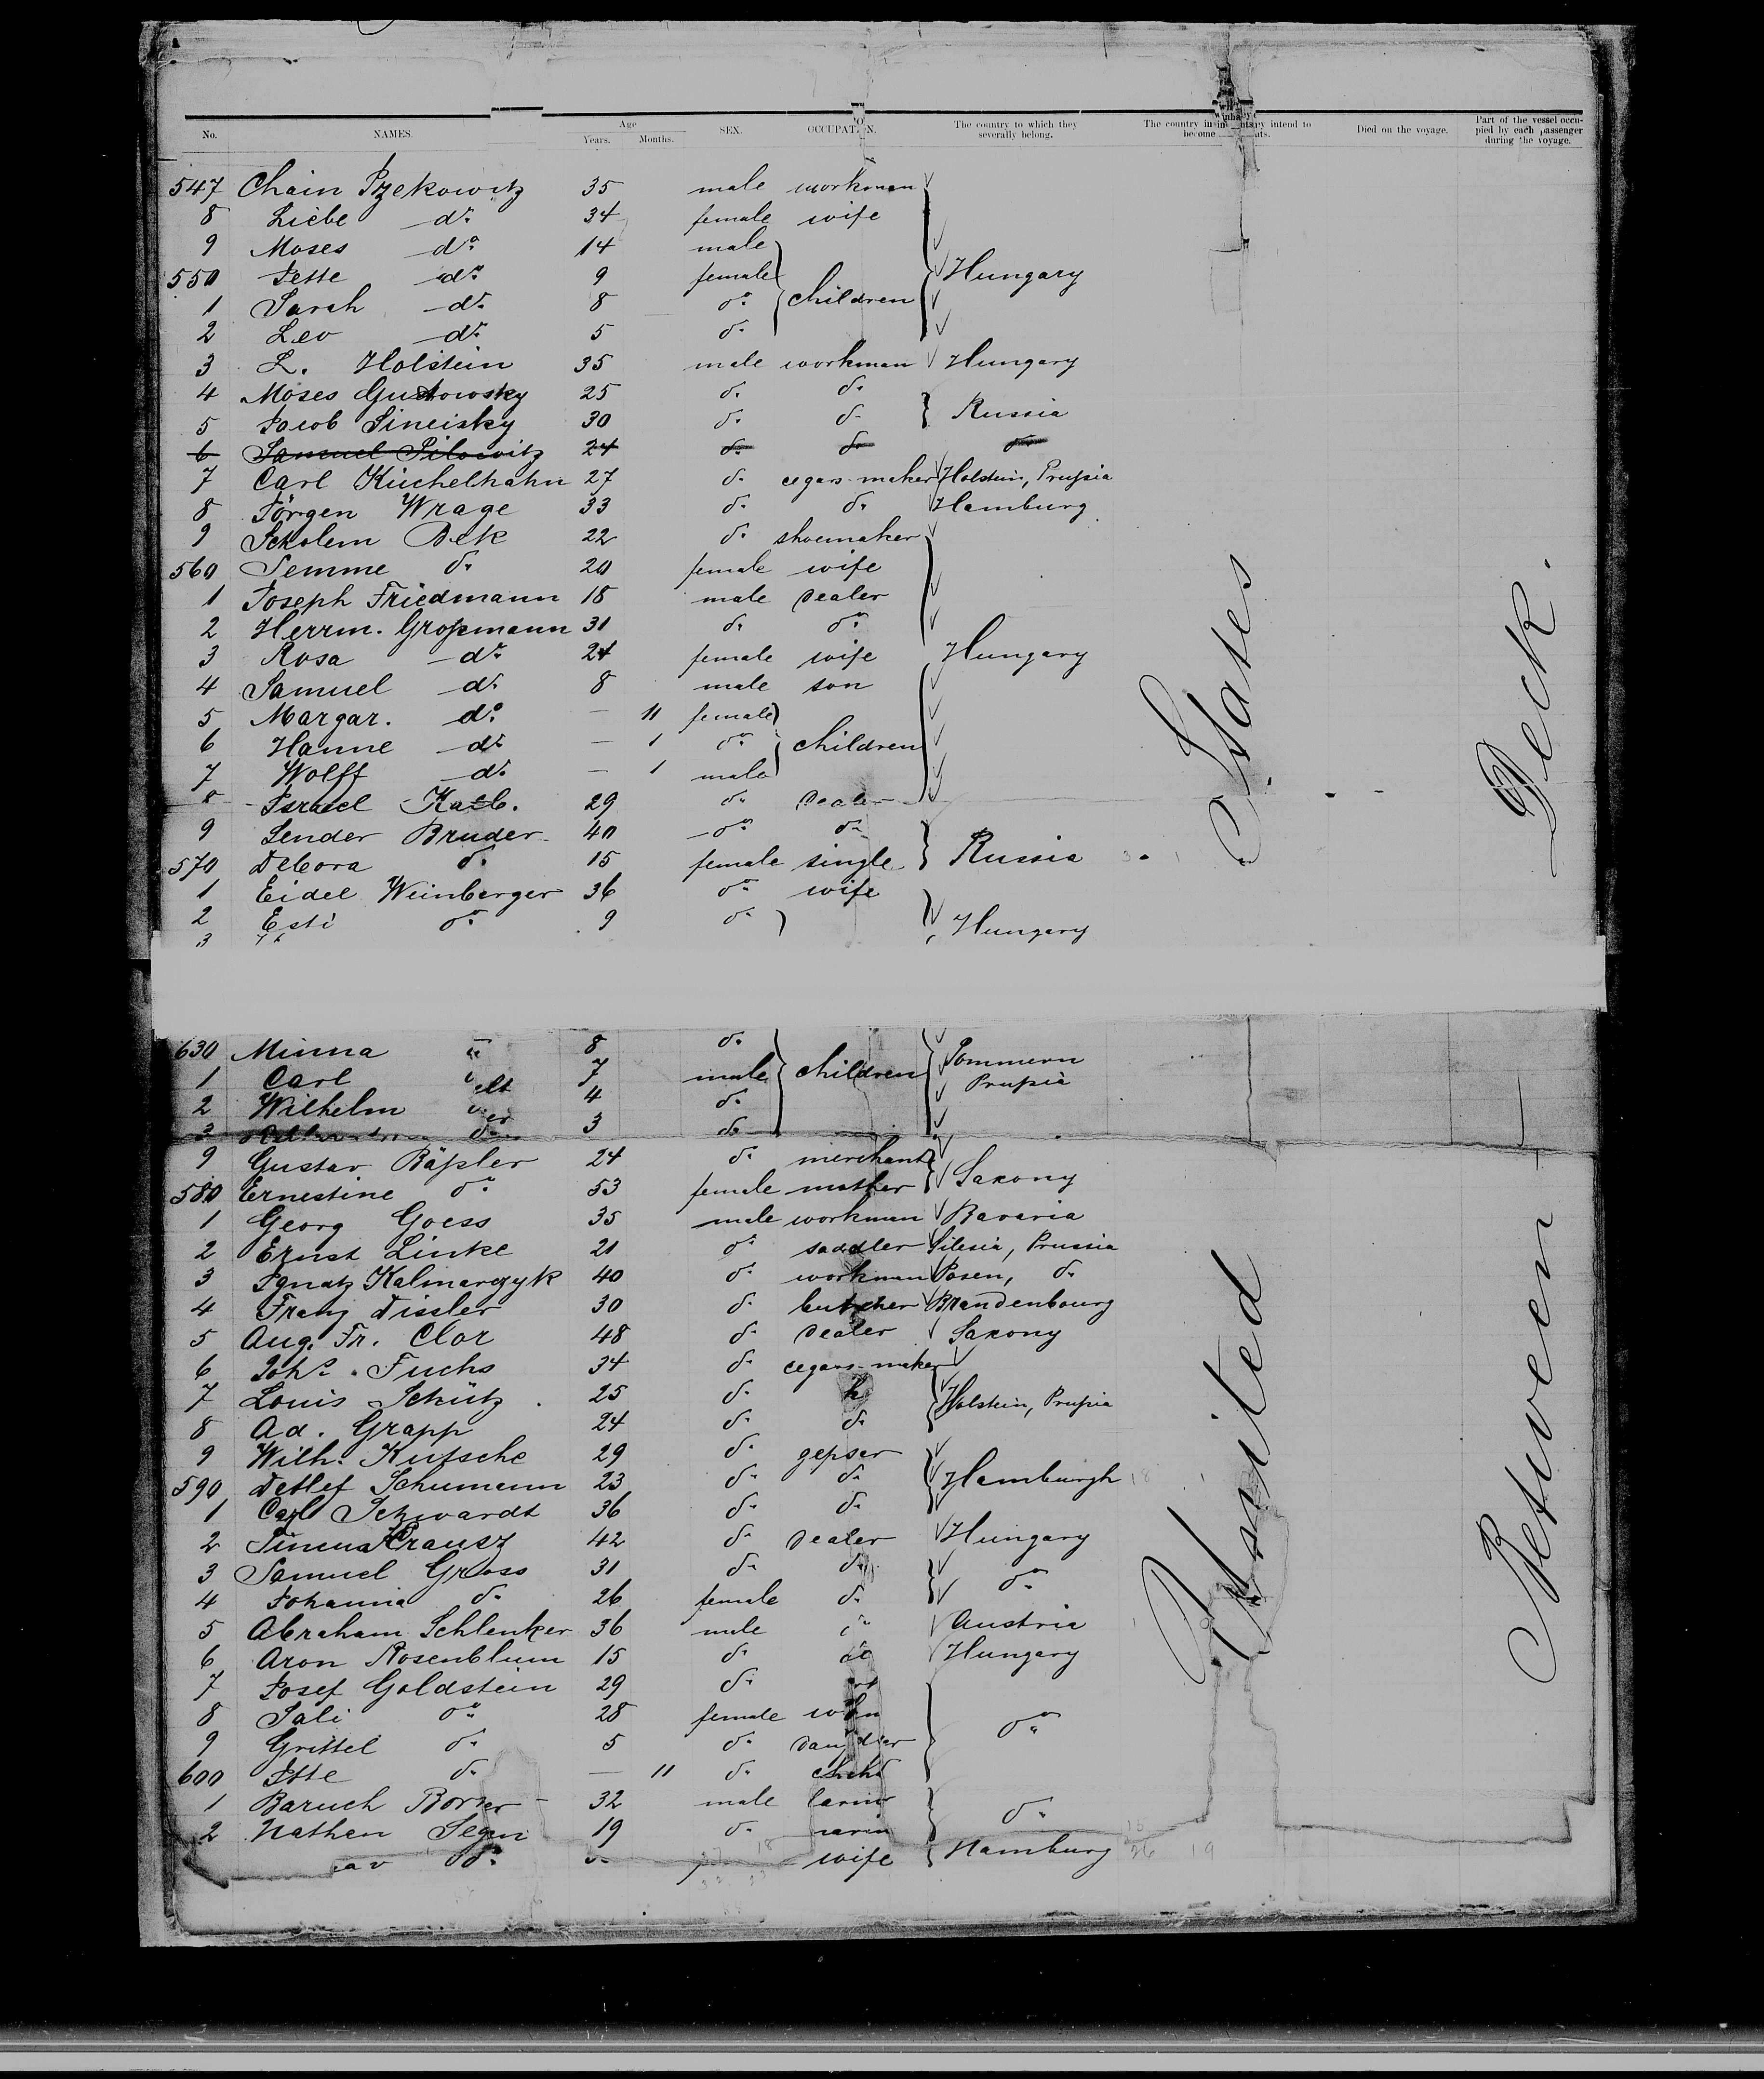 No. NAMES. Age Years. Months. SEX. OCCUPATION. The country to which they severally belong. The country in intend to become Died on the voyage. Part of the vessel occupied by each passenger during the voyage.
547 Chain 35 male workman
8 Liebe do. 34 female wife
9 Moses do. 14 male
550 Jette do. 9 female Hungary
1 Sarah do. 8 do. children
2 Leo do. 5 do.
3 L. Holstein 35 male workman Hungary
4 Moses Gustowsky 25 do. do.
5 Jacob Sineisky 30 do. do. Russia
6 Samuel 24 do. do. do.
7 Carl Küchelhahn 27 do. cegars-maker Holstein, Prussia
8 Jörgen Wrage 33 do. do. Hamburg
9 Scholem Bek 22 do. shoemaker
560 Semme do. 20 female wife
1 Joseph Friedmann 18 male dealer
2 Herrm. Grossmann 31 do. do.
3 Rosa do. 24 female wife Hungary
4 Samuel do. 8 male son
5 Margar. do. — 11 female
6 Hanne do. — 1 do. children
7 Wolff do. — 1 male
8 Israel Kalb. 29 do. dealer
9 Sender Bruder 40 do. do.
570 Debora do. 15 female single Russia
1 Eidel Weinberger 36 do. wife
2 Esti do. 9 do. Hungary
3
630 Minna 8 do.
1 Carl 7 male children Pommern
2 Wilhelm 4 do. Prussia
3 do. 3 do.
9 Gustav Bässler 24 do. merchant
580 Ernestine do. 53 female mother Saxony
1 Georg Goess 35 male workman Bavaria
2 Ernst Linke 21 do. saddler Silesia, Prussia
3 Ignatz Kalmarczyk 40 do. workman Posen, do.
4 Franz Tissler 30 do. butcher Brandenbourg
5 Aug. Fr. Clor 48 do. dealer Saxony
6 Johs. Fuchs 34 do. cegars-maker
7 Louis Schütz 25 do. Holstein, Prussia
8 Ad. Grapp 24 do. do.
9 Wilh. Kutsche 29 do. gepser
590 Detlef Schumann 23 do. do. Hamburgh
1 Carl Schwardt 36 do. do.
2 Krausz 42 do. dealer Hungary
3 Samuel Gross 31 do. do.
4 Johanna do. 26 female do. do.
5 Abraham Schlenker 36 male do. Austria
6 Aron Rosenblum 15 do. Hungary
7 Josef Goldstein 29 do.
8 Sali do. 28 female
9 Grittel do. 5 do. daughter do.
600 Itte do. — 11 do. child
1 Baruch 32 male
2 Nathan 19 do. do.
do. wife Hamburg
United States
Between Deck.